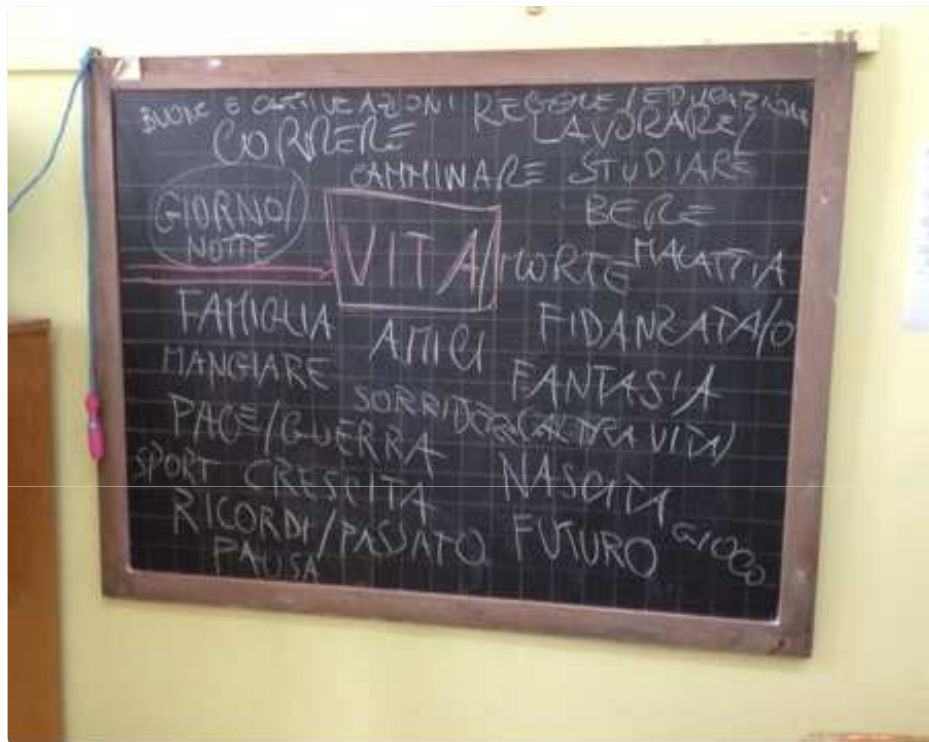 BUONE E CATTIVE AZIONI REGOLE/EDUCAZIONE
CORRERE LAVORARE/
CAMMINARE STUDIARE
GIORNO/ BERE
NOTTE
VITA/MORTE MALATTIA
FAMIGLIA AMICI FIDANZATA/O
MANGIARE FANTASIA
SORRIDERE (ALTRA VITA)
PACE/GUERRA
SPORT CRESCITA NASCITA
RICORDI/PASSATO FUTURO GIOCO
PAUSA